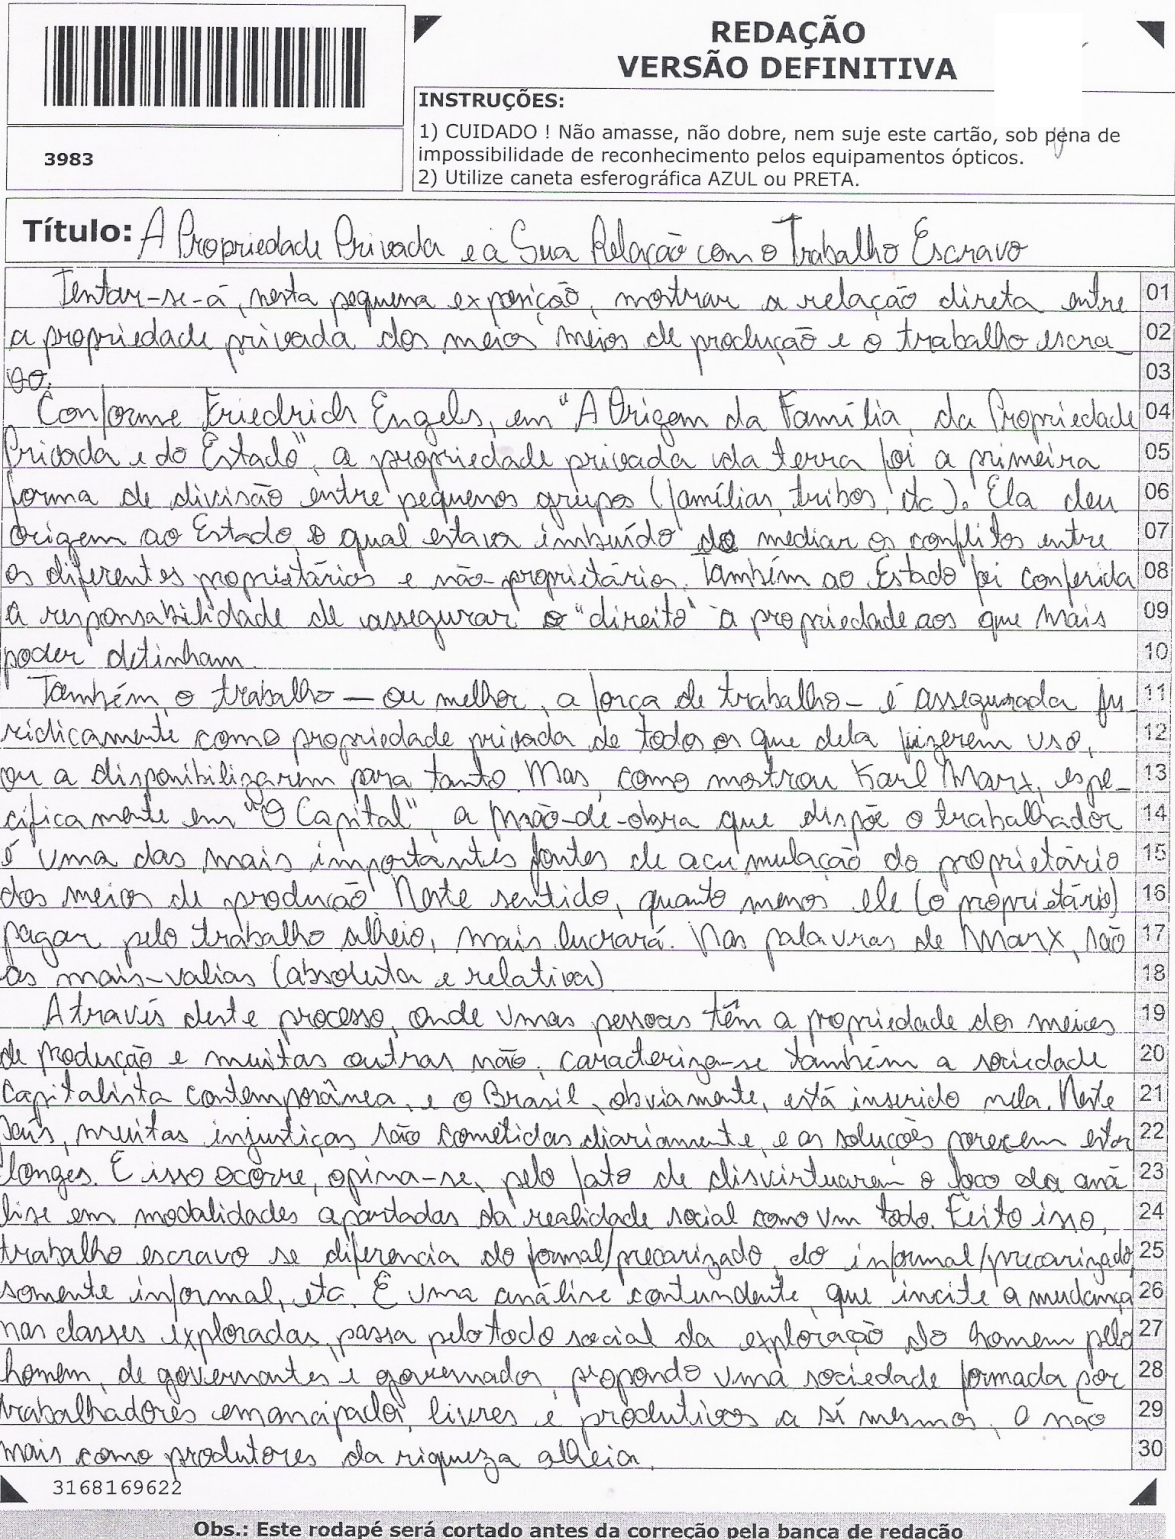 REDAÇÃO
VERSÃO DEFINITIVA
INSTRUÇÕES:
1) CUIDADO ! Não amasse, não dobre, nem suje este cartão, sob pena de
impossibilidade de reconhecimento pelos equipamentos ópticos.
2) Utilize caneta esferográfica AZUL ou PRETA.
3983
Título: A Propriedade Privada e a Sua Relação com o Trabalho Escravo
Tentar-se-á, nesta pequena exposição, mostrar a relação direta entre 01
a propriedade privada dos meios meios de produção e o trabalho escra- 02
vo. 03
Conforme Friedrich Engels, em "A Origem da Família, da Propriedade 04
Privada e do Estado", a propriedade privada da terra foi a primeira 05
forma de divisão entre pequenos grupos (famílias, tribos, etc). Ela deu 06
origem ao Estado o qual estava imbuído de mediar os conflitos entre 07
os diferentes proprietários e não-proprietários. Também ao Estado foi conferida 08
a responsabilidade de assegurar o "direito" à propriedade aos que mais 09
poder detinham. 10
Também o trabalho — ou melhor, a força de trabalho — é assegurada ju- 11
ridicamente como propriedade privada de todos os que dela fizerem uso, 12
ou a disponibilizarem para tanto. Mas, como mostrou Karl Marx, espe- 13
cificamente em "O Capital", a mão-de-obra que dispõe o trabalhador 14
é uma das mais importantes fontes de acumulação do proprietário 15
dos meios de produção. Neste sentido, quanto menos ele (o proprietário) 16
pagar pelo trabalho alheio, mais lucrará. Nas palavras de Marx, são 17
as mais-valias (absoluta e relativa) 18
Através deste processo, onde umas pessoas têm a propriedade dos meios 19
de produção e muitas outras não, caracteriza-se também a sociedade 20
capitalista contemporânea, e o Brasil, obviamente, está inserido nela. Neste 21
país, muitas injustiças são cometidas diariamente, e as soluções parecem estar 22
longes. E isso ocorre, opina-se, pelo fato de disvirtuarem o foco da aná 23
lise em modalidades apartadas da realidade social como um todo. Feito isso, 24
trabalho escravo se diferencia do formal/precarizado, do informal/precarizado, 25
somente informal, etc. E uma análise contundente, que incite a mudança 26
nas classes exploradas, passa pelo todo social da exploração do homem pelo 27
homem, de governantes e governados, propondo uma sociedade formada por 28
trabalhadores emancipados, livres e produtivos a sí mesmos, e não 29
mais como produtores da riqueza alheia. 30
3168169622
Obs.: Este rodapé será cortado antes da correção pela banca de redação